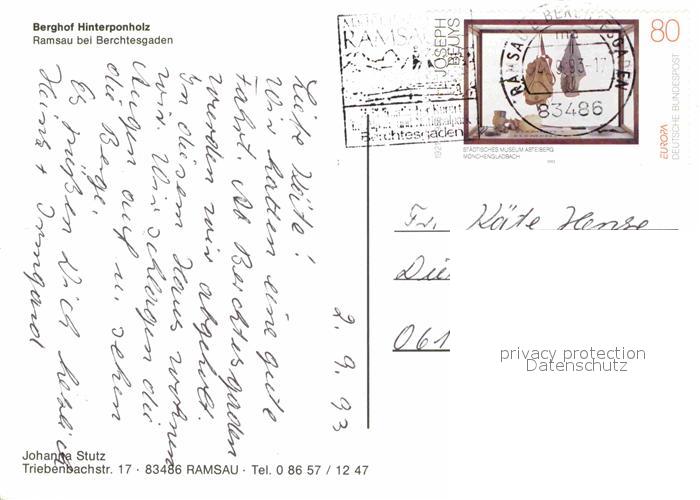 Berghof Hinterponholz
Ramsau bei Berchtesgaden
2. 9. 93
Liebe Käte!
Wir hatten eine gute
Fahrt. Ab Berchtesgaden
werden wir abgeholt.
In diesem Haus wohnen
wir. Wir schlagen die
Augen auf u. sehen
die Berge.
Es grüßen Dich herzlich
Heinz + Irmgard
Johanna Stutz
Triebenbachstr. 17 · 83486 RAMSAU · Tel. 0 86 57 / 12 47
RAMSAU
Berchtesgaden
RAMSAU B BERCHTESGADEN
83486
JOSEPH
BEUYS
80
DEUTSCHE BUNDESPOST
EUROPA
STÄDTISCHES MUSEUM ABTEIBERG
MÖNCHENGLADBACH
Fr. Käte Hense
Die
061
privacy protection
Datenschutz